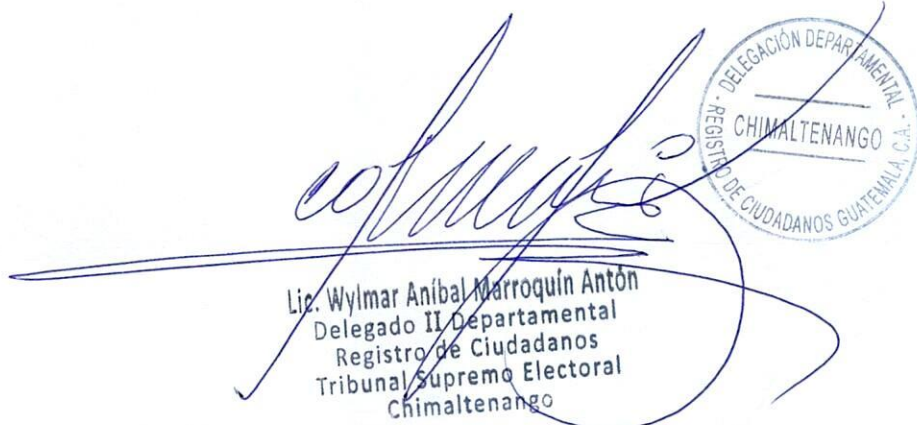 DELEGACIÓN DEPARTAMENTAL -
CHIMALTENANGO
REGISTRO DE CIUDADANOS GUATEMALA, C.A. -
Lic. Wylmar Aníbal Marroquín Antón
Delegado II Departamental
Registro de Ciudadanos
Tribunal Supremo Electoral
Chimaltenango